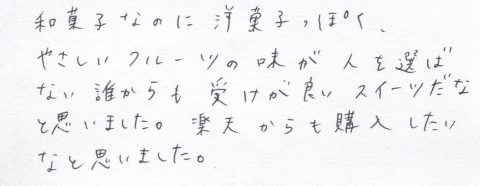 和菓子なのに洋菓子っぽく、
やさしいフルーツの味が人を選ば
ない誰からも受けが良いスイーツだな
と思いました。楽天からも購入したい
なと思いました。